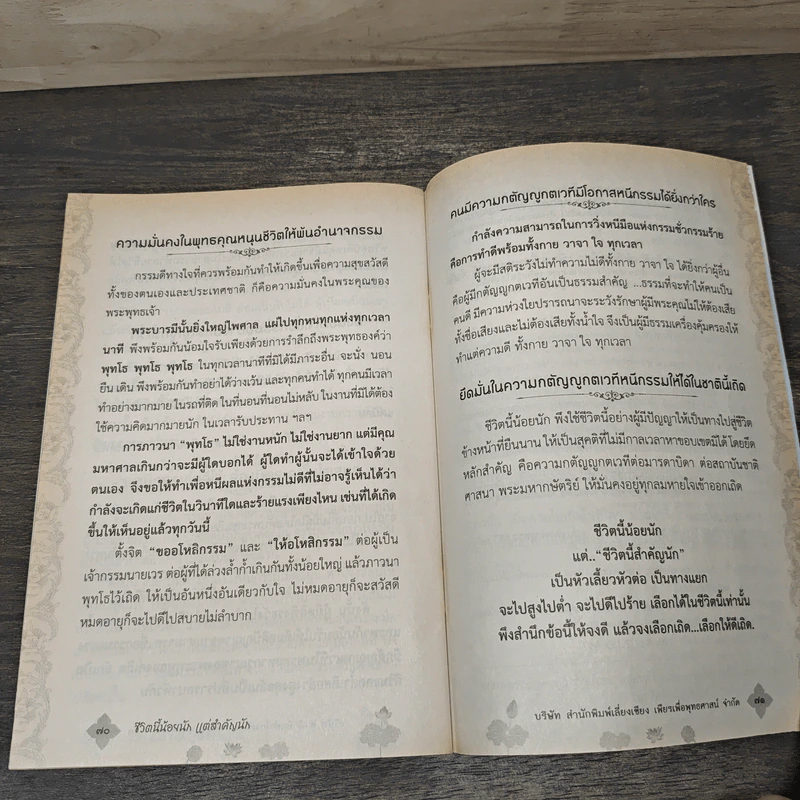 ความมั่นคงในพุทธคุณหนุนชีวิตให้พ้นอำนาจกรรม
กรรมดีทางใจที่ควรพร้อมกันทำให้เกิดขึ้นเพื่อความสุขสวัสดี
ทั้งของตนเองและประเทศชาติ ก็คือความมั่นคงในพระคุณของ
พระพุทธเจ้า
พระบารมีนั้นยิ่งใหญ่ไพศาล แผ่ไปทุกหนทุกแห่งทุกเวลา
นาที พึงพร้อมกันน้อมใจรับเพียงด้วยการรำลึกถึงพระพุทธองค์ว่า
พุทโธ พุทโธ พุทโธ ในทุกเวลานาทีที่มิได้มีภาระอื่น จะนั่ง นอน
ยืน เดิน พึงพร้อมกันทำอย่าได้ว่างเว้น และทุกคนทำได้ ทุกคนมีเวลา
ทำอย่างมากมาย ในรถที่ติด ในที่นอนที่นอนไม่หลับ ในงานที่มิได้ต้อง
ใช้ความคิดมากมายนัก ในเวลารับประทาน ฯลฯ
การภาวนา “พุทโธ” ไม่ใช่งานหนัก ไม่ใช่งานยาก แต่มีคุณ
มหาศาลเกินกว่าจะมีผู้ใดบอกได้ ผู้ใดทำผู้นั้นจะได้เข้าใจด้วย
ตนเอง จึงขอให้ทำเพื่อหนีผลแห่งกรรมไม่ดีที่ไม่อาจรู้เห็นได้ว่า
กำลังจะเกิดแก่ชีวิตในวินาทีใดและร้ายแรงเพียงไหน เช่นที่ได้เกิด
ขึ้นให้เห็นอยู่แล้วทุกวันนี้
ตั้งจิต “ขออโหสิกรรม” และ “ให้อโหสิกรรม” ต่อผู้เป็น
เจ้ากรรมนายเวร ต่อผู้ที่ได้ล่วงล้ำก้ำเกินกันทั้งน้อยใหญ่ แล้วภาวนา
พุทโธไว้เถิด ให้เป็นอันหนึ่งอันเดียวกับใจ ไม่หมดอายุก็จะสวัสดี
หมดอายุก็จะไปดีไปสบายไม่ลำบาก
๗๐ ชีวิตนี้น้อยนัก แต่สำคัญนัก
คนมีความกตัญญูกตเวทีมีโอกาสหนีกรรมได้ยิ่งกว่าใคร
กำลังความสามารถในการวิ่งหนีมือแห่งกรรมชั่วกรรมร้าย
คือการทำดีพร้อมทั้งกาย วาจา ใจ ทุกเวลา
ผู้จะมีสติระวังไม่ทำความไม่ดีทั้งกาย วาจา ใจ ได้ยิ่งกว่าผู้อื่น
คือผู้มีกตัญญูกตเวทีอันเป็นธรรมสำคัญ ...ธรรมที่จะทำให้คนเป็น
คนดี มีความห่วงใยปรารถนาจะระวังรักษาผู้มีพระคุณไม่ให้ต้องเสีย
ทั้งชื่อเสียงและไม่ต้องเสียทั้งน้ำใจ จึงเป็นผู้มีธรรมเครื่องคุ้มครองให้
ทำแต่ความดี ทั้งกาย วาจา ใจ ทุกเวลา
ยึดมั่นในความกตัญญูกตเวทีหนีกรรมให้ได้ในชาตินี้เถิด
ชีวิตนี้น้อยนัก พึงใช้ชีวิตนี้อย่างผู้มีปัญญาให้เป็นทางไปสู่ชีวิต
ข้างหน้าที่ยืนนาน ให้เป็นสุคติที่ไม่มีกาลเวลาหาขอบเขตมิได้ โดยยึด
หลักสำคัญ คือความกตัญญูกตเวทีต่อมารดาบิดา ต่อสถาบันชาติ
ศาสนา พระมหากษัตริย์ ให้มั่นคงอยู่ทุกลมหายใจเข้าออกเถิด
ชีวิตนี้น้อยนัก
แต่..“ชีวิตนี้สำคัญนัก”
เป็นหัวเลี้ยวหัวต่อ เป็นทางแยก
จะไปสูงไปต่ำ จะไปดีไปร้าย เลือกได้ในชีวิตนี้เท่านั้น
พึงสำนึกข้อนี้ให้จงดี แล้วจงเลือกเถิด...เลือกให้ดีเถิด.
บริษัท สำนักพิมพ์เลี่ยงเชียง เพียรเพื่อพุทธศาสน์ จำกัด ๗๑